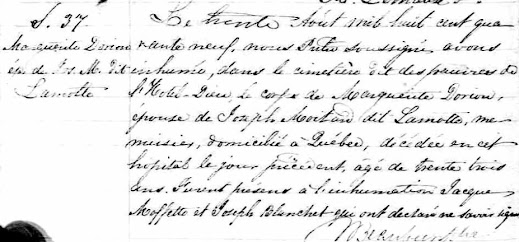 S. 37
Marguerite Dorion
épse de Jos. M. dit
Lamotte
Le trente Août mil huit cent qua
rante neuf, nous Prêtre soussigné avons
inhumé, dans le cimetière dit des pauvres de
l'Hotel-Dieu le corps de Marguerite Dorion,
épouse de Joseph dit Lamotte, me
nuisier, domicilié à Québec, décédée en cet
hôpital le jour précédent, agé de trente trois
ans. Furent présens à l'inhumation Jacque
Moffette et Joseph Blanchet qui ont déclaré ne savoir signer